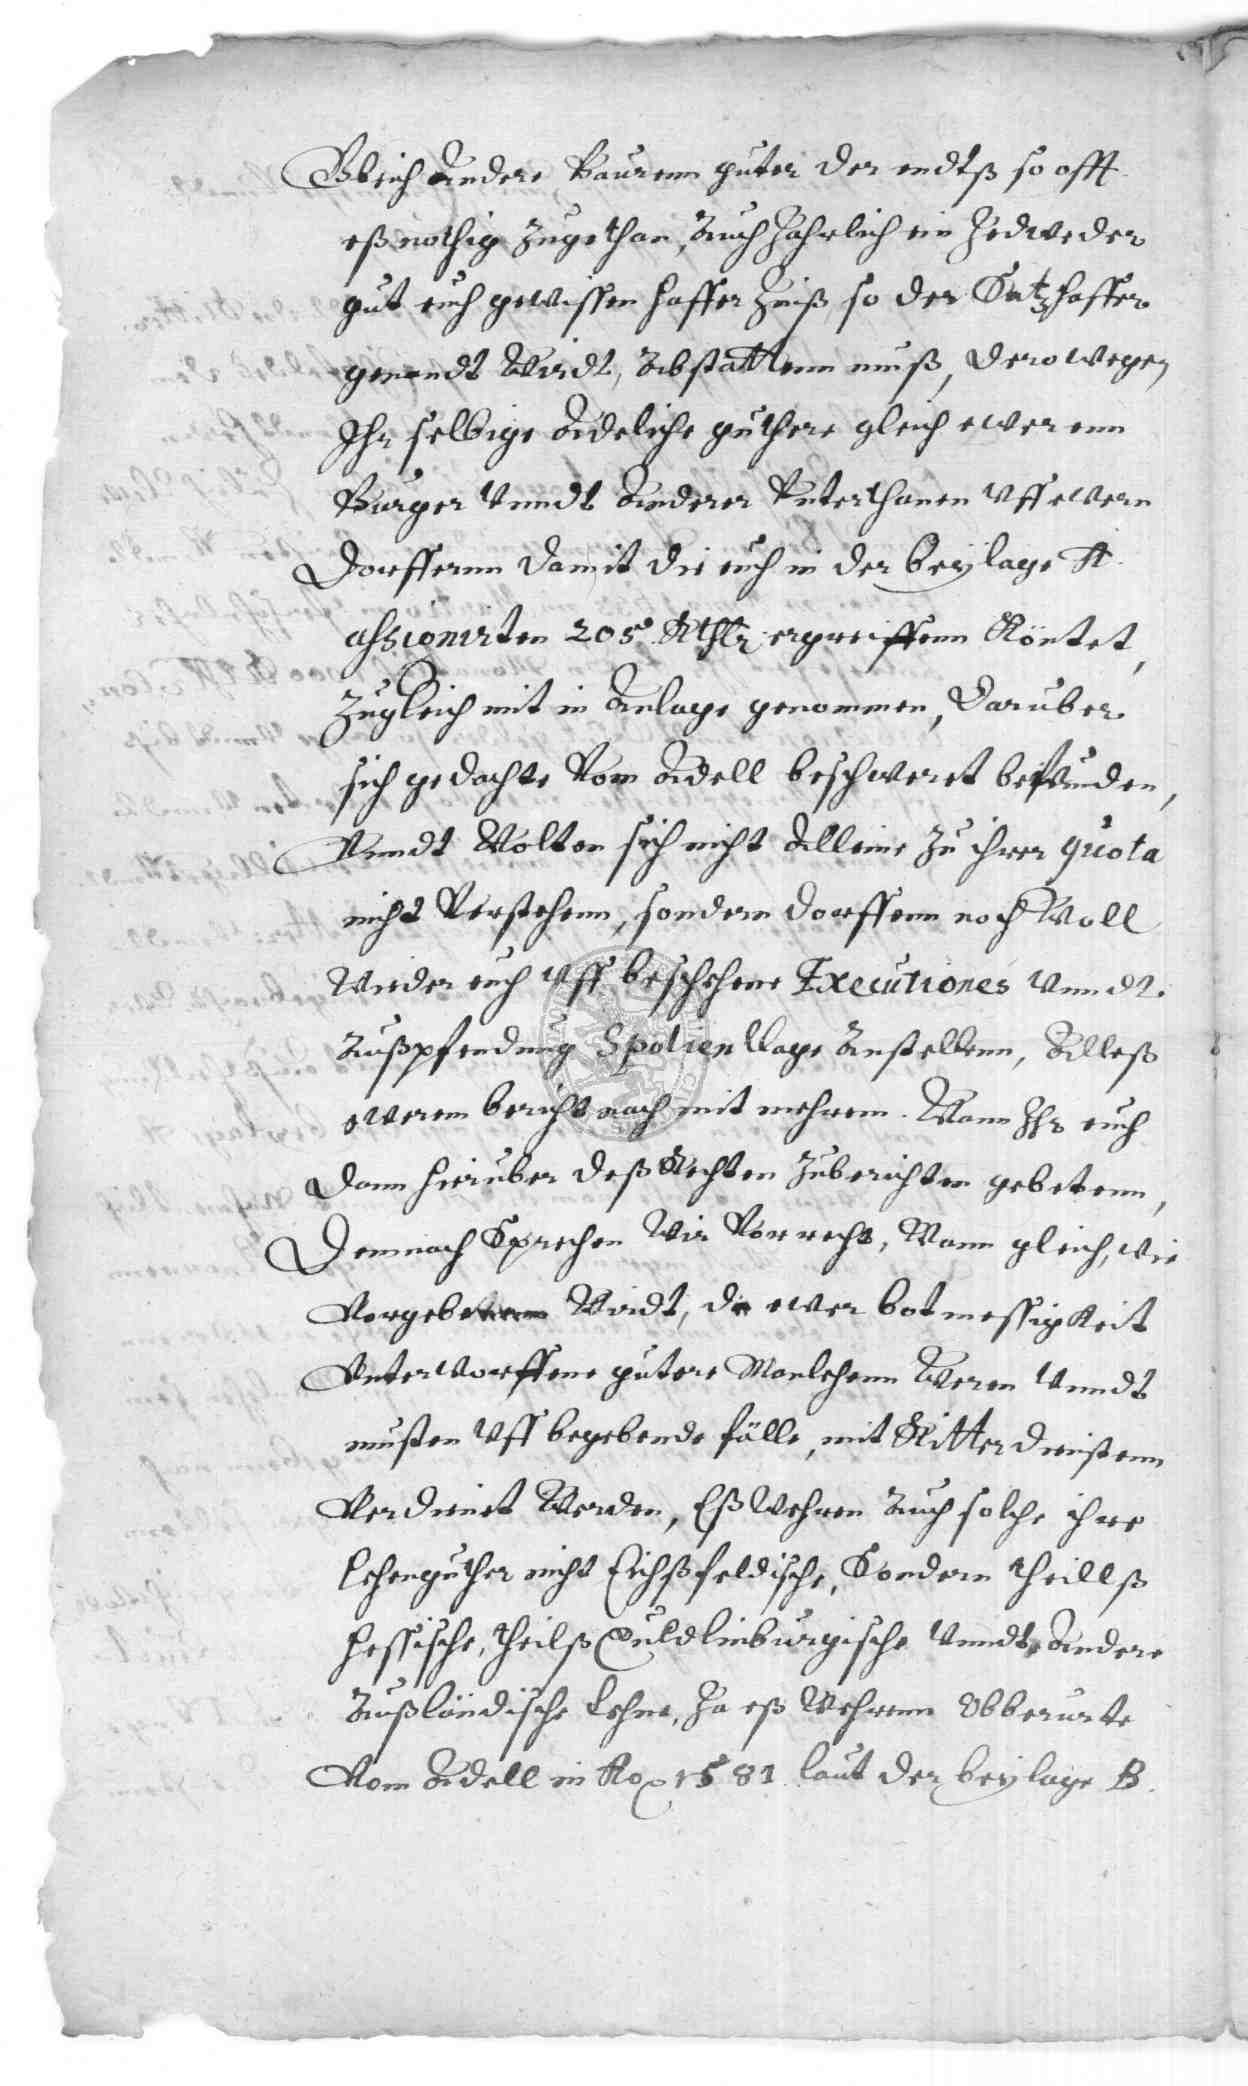 Gleich Andere Baurenn guter der endtß so offt
eß nothig zugethan, Auch Jahrlich ein Jedweder
gut euch gewissen haffer Zinß so der Satzhaffer
genandt Wirdt, Abstattenn muß, derowegen
Ihr selbige Adeliche guthere gleich ewerenn
Burger Vnndt Anderer Vnterthanen Vff ewern
Dorffernn damit die euch in der beylage A.
assignirten 205 Rthlr ergreiffenn Köntet,
Zugleich mit in Anlage genommen, Daruber
sich gedachte Vom Adell beschweret befunden,
Vnndt Wolten sich nicht Alleine zu ihrer quota
nicht Verstehenn, sondern dorffenn noch Woll
Wieder euch Vff beschehene Executiones Vnndt
Außpfendung Spolien klage Anstellenn, Alleß
ewerem bericht nach mit mehrem. Wann Ihr euch
dann hieruber deß Rechten Zuberichten gebetenn,
Demnach Sprechen Wir Vor recht, Wann gleich, wie
Vorgebenn Wirdt, die ewer botmessigkeit
Vnterworffene gutere Manlehenn Weren Vnndt
musten Vff begebende fälle, mit Ritterdienstenn
Verdienet Werden, Eß Wehren Auch solche ihre
Lehenguther nicht Eichßfeldische, Sondern theillß
Hessische, theilß Quldlinburgische Vnndt Andere
Außländische Lehne, Ja eß Wehrenn Obberurte
Vom Adell in Ao 1581. laut der beylage B.